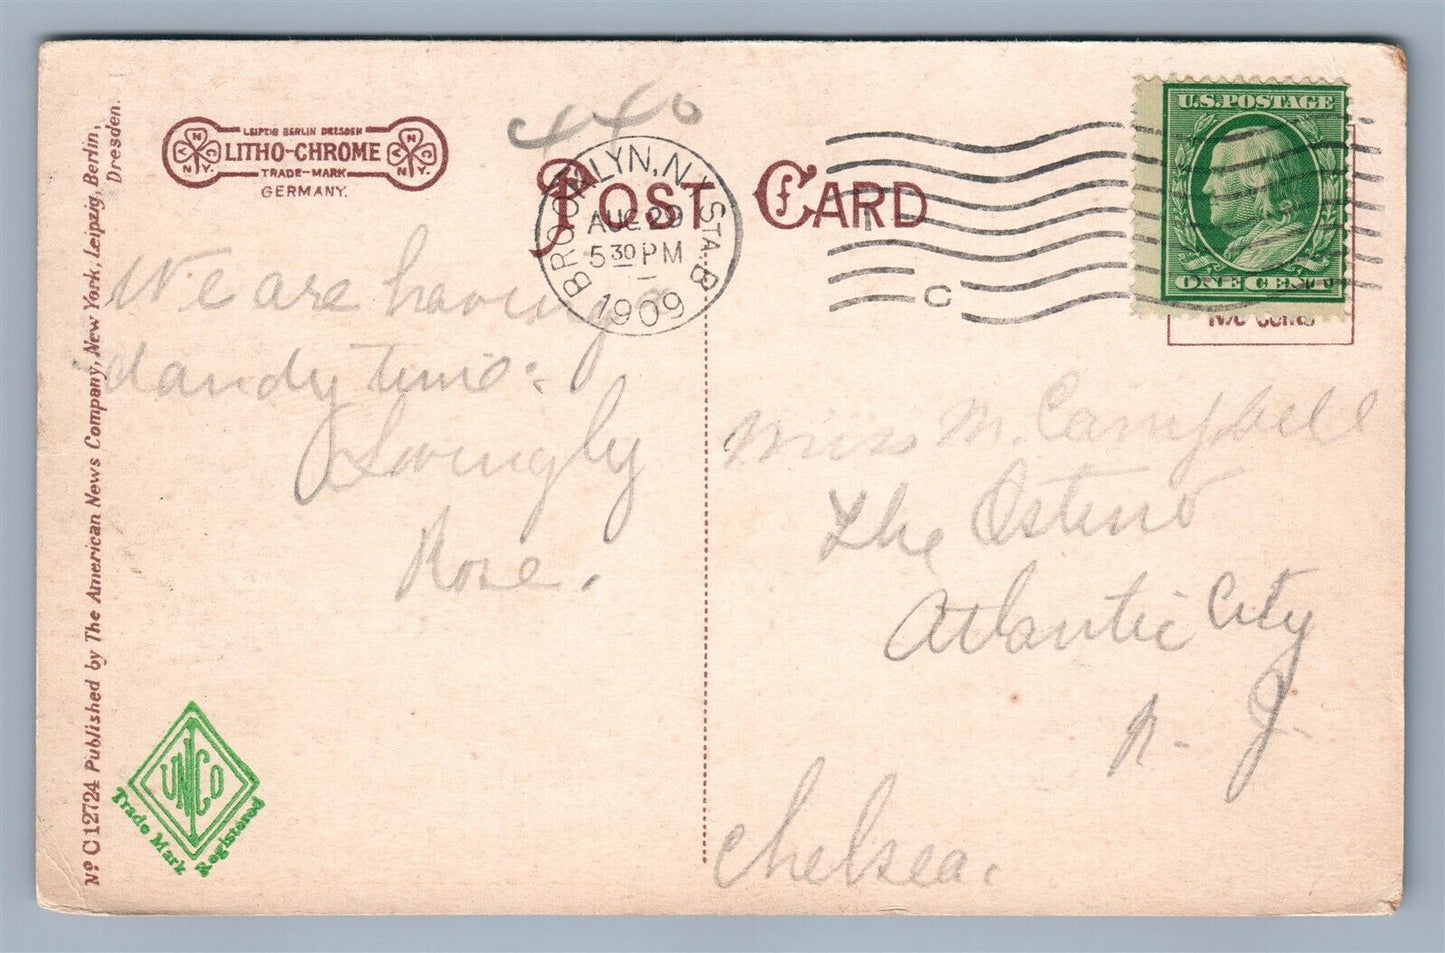 440
LEIPZIG BERLIN DRESDEN
LITHO-CHROME
TRADE-MARK
GERMANY.
POST CARD
BROOKLYN, N.Y. STA. B
AUG 29
5 30 PM
1909
C
U.S. POSTAGE
ONE CENT
We are having a
dandy time.
Lovingly
Rose.
Miss M. Campbell
The Ostend
Atlantic City
N. J.
Chelsea.
No C 12724 Published by The American News Company, New York, Leipzig, Berlin,
Dresden.
UNCO
Trade Mark Registered